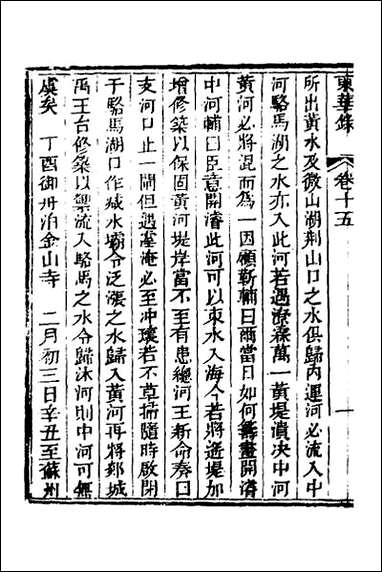 東華錄 卷十五 一
所出黃水及微山湖荆山口之水俱歸內運河必流入中
河駱馬湖之水亦入此河若遇潦霖萬一黃堤潰決中河
黃河必將混而為一因顧靳輔曰爾當日如何籌畫開濬
中河輔曰臣意開濬此河可以束水入海今若將遥堤加
增修築以保固黃河堤岸當不至有患總河王新命奏曰
支河口止一閘但遇霪淹必至冲壞若不草掃隨時啟閉
于駱馬湖口作減水壩令泛漲之水歸入黃河再將郯城
禹王台修築以禦流入駱馬之水令歸沐河則中河可無
虞矣 丁酉御舟泊金山寺 二月初三日辛丑至蘇州